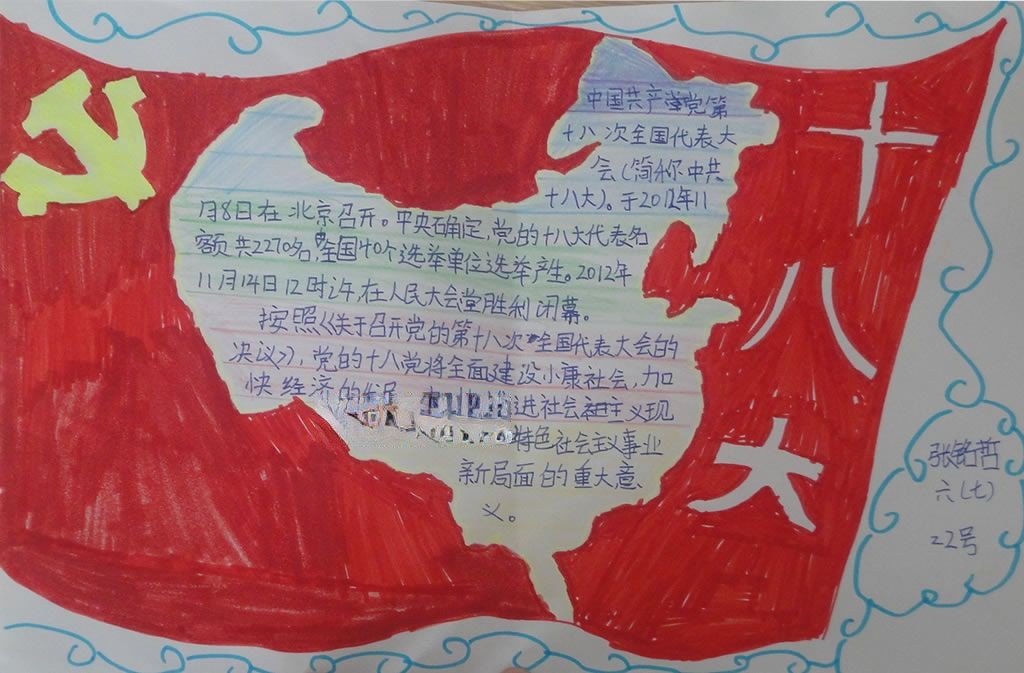 中国共产党第
十八次全国代表大
会（简称中共
十八大）。于2012年11
月8日在北京召开。中央确定，党的十八大代表名
额共2270名，由全国40个选举单位选举产生。2012年
11月14日12时许，在人民大会堂胜利闭幕。
按照《关于召开党的第十八次全国代表大会的
决议》，党的十八党将全面建设小康社会，加
快经济的
进社会主义现
特色社会主义事业
新局面的重大意
义。
十
八
大
张铭哲
六（七）
22号